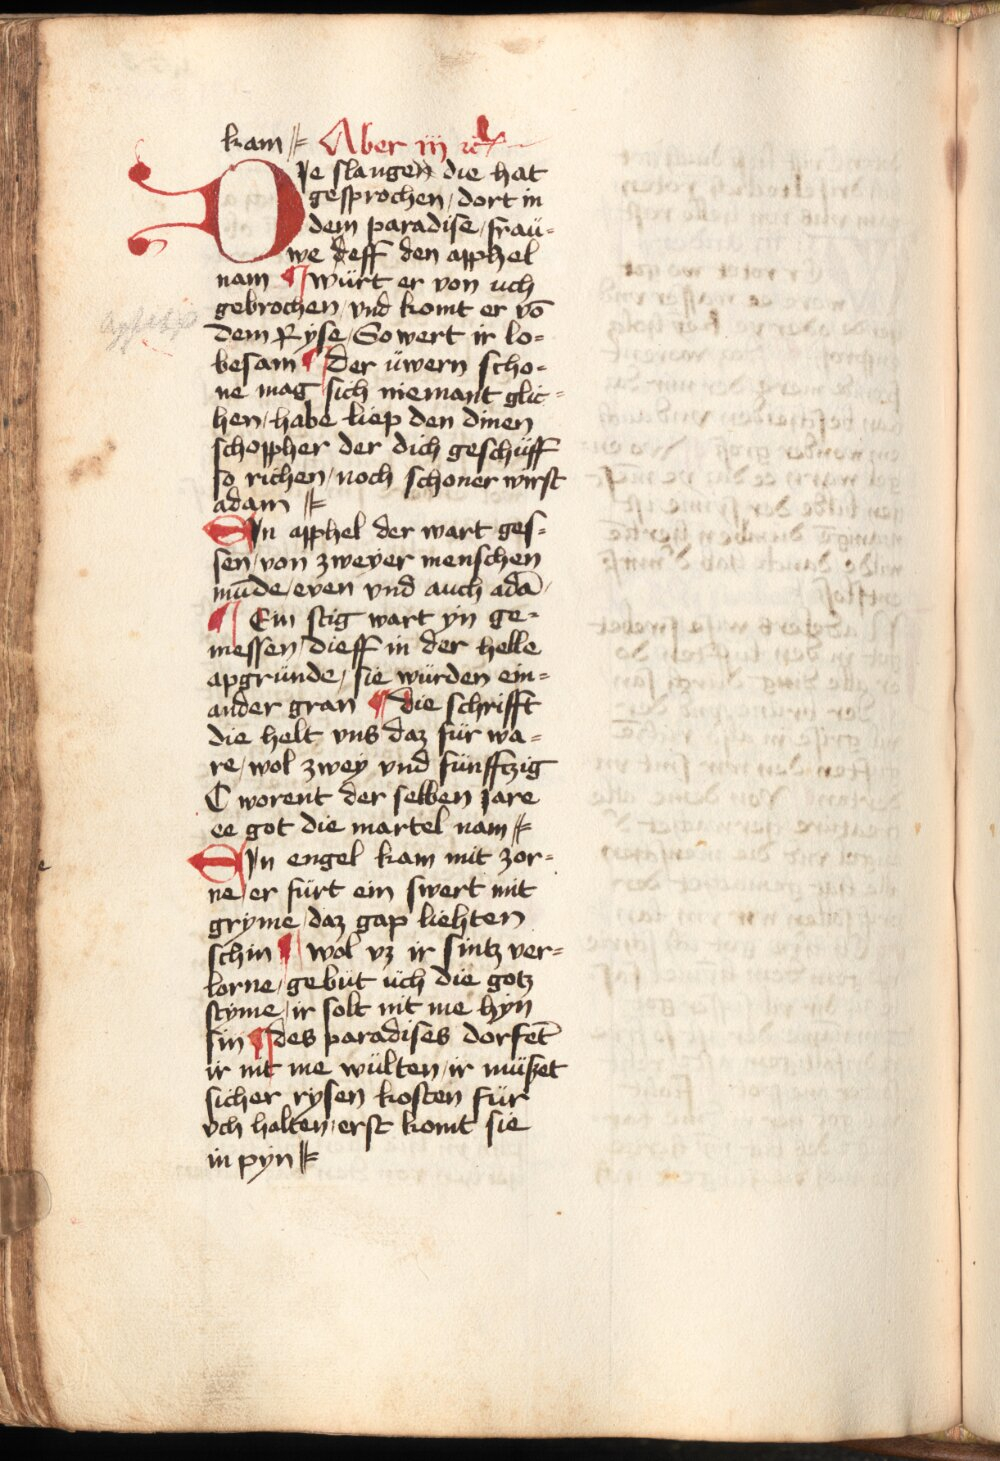 kam Aber iij rc
Die slangen die hat
gesprochen / dort in
dem paradise / fraü-
we deff den apphel
nam ¶ würt er von uch
gebrochen / vnd komt er vō
dem Ryse / So wert ir lo-
besam ¶ der üwern scho-
ne mag sich niemant glic-
hen / habe liep den dinen
schoppher der dich geschüff
so richen / noch schoner wirst
adam
Ein apphel der wart ges-
sen / von zweyer menschen
mūde / even vnd auch adā /
¶ Ein stig wart yn ge-
messen / dieff in der helle
apgründe / sie würden ein-
ander gran ¶ die schrifft
die helt vns daz für wa-
re / wol zwey vnd fünfftzig
C worent der selben jare
ee got die martel nam
Ein engel kam mit zor-
ne / er fürt ein swert mit
gryme / daz gap liehten
schin ¶ wol vz ir sintz ver-
lorne / gebüt üch die gotz
styme / ir solt nit me hyn
sin ¶ des paradises dorfet̄
ir nit me wülten / ir müszet
sicher rysen kosten für
vch halten / erst komt sie
in pyn